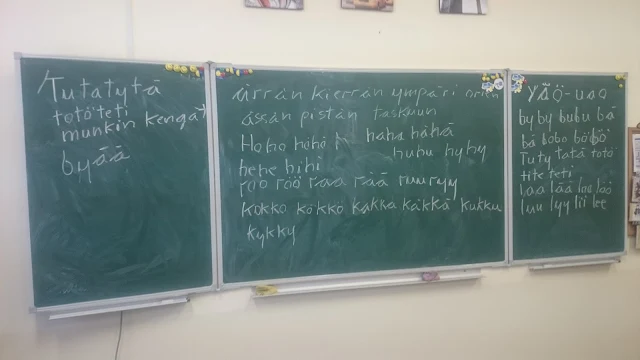 Tutatytä
totöteti
munkin kengät
byää
ärrän kierrän ympäri orren
ässän pistän taskuun
Hoho höhö haha hähä
huhu hyhy
hehe hihi
roo röö raa rää ruu ryy
kokko kökkö kakka käkkä kukku
kykky
YÄÖ-UAO
byby bubu bä
bä bobo böbö
Tuty tatä totö
tite teti
Laa lää loo löö
luu lyy lii lee